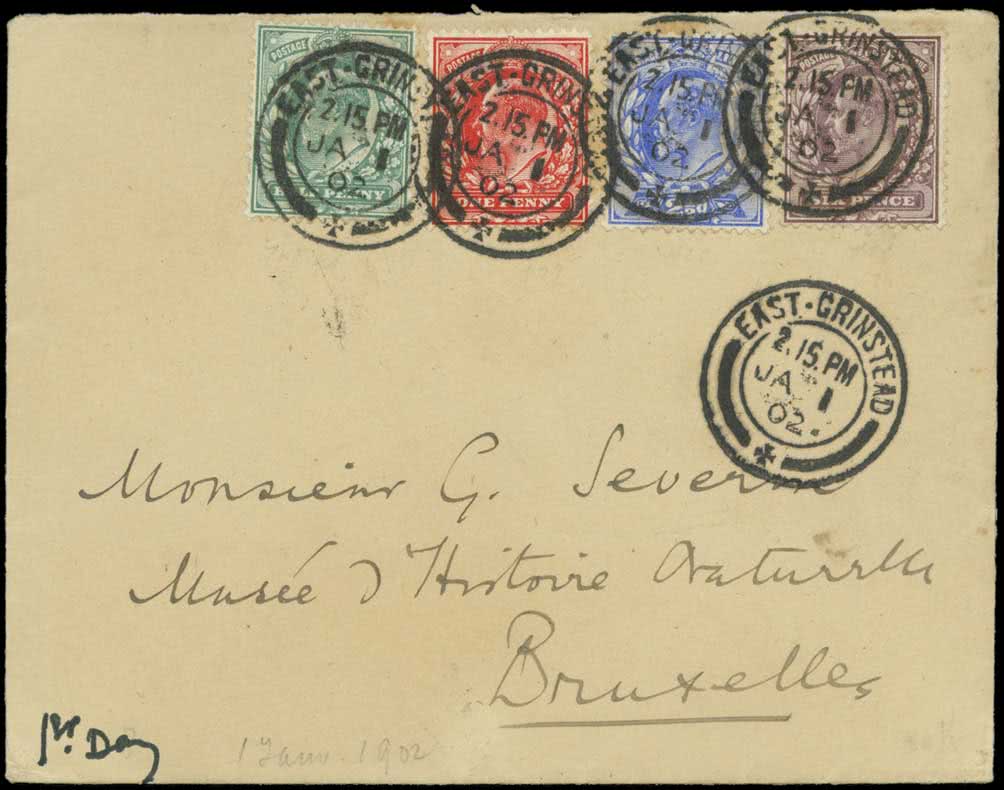 POSTAGE
POSTAGE
POSTAGE
EAST-GRINS
2.15.PM
JA 1
02
EAST-GRINS
2.15.PM
JA 1
02
EAST
2.15.PM
JA 1
02
EAST-GRINSTEAD
2.15.PM
JA 1
02
ONE PENNY
SIX PENCE
EAST-GRINSTEAD
2.15.PM
JA 1
02
Monsieur G. Severin
Musée d'Histoire Naturelle
Bruxelles
1st. Day
1 Janv. 1902